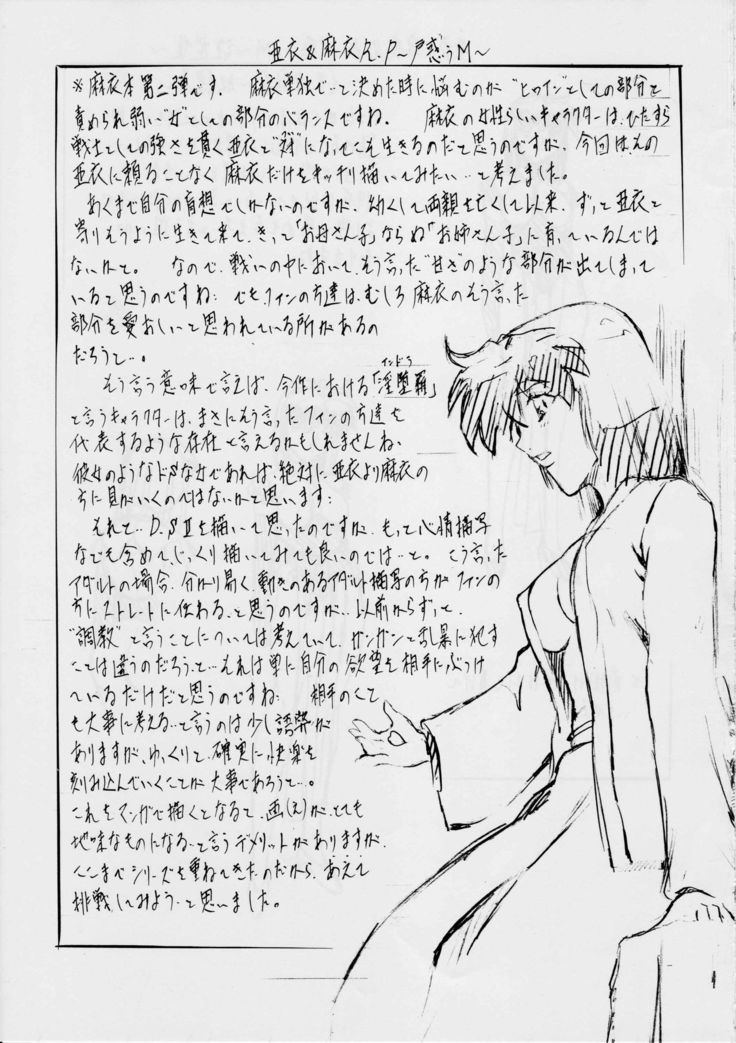 亜衣&麻衣R.P〜戸惑うM〜
※麻衣本第二弾です。 麻衣単独で…と決めた時に悩むのが“ヒロイン”としての部分と
責められ弱い“女”としての部分のバランスですね。 麻衣の女性らしいキャラクターは、ひたすら
戦士としての強さを貫く亜衣と“対”になってこそ生きるのだと思うのですが、今回は、その
亜衣に頼ることなく麻衣だけをキッチリ描いてみたい…と考えました。
あくまで自分の妄想でしかないのですが、幼くして両親を亡くして以来、ずっと亜衣と
寄りそうように生きて来て、きっと「お母さん子」ならぬ「お姉さん子」に育っているんでは
ないかと。 なので、戦いの中において、そう言った“甘さ”のような部分が出てしまって
いると思うのですね… でもファンの方達は、むしろ麻衣のそう言った
部分を愛おしいと思われている所があるの
だろうと…。
そう言う意味で言えば、今作における「淫堕羅」
インドラ
と言うキャラクターは、まさにそう言ったファンの方達を
代表するような存在と言えるかもしれませんね、
彼女のようなドSな女であれば、絶対に亜衣より麻衣の
方に目がいくのではないかと思います…
それと…D.SⅡを描いて思ったのですが、もっと心情描写
なども含めて、じっくり描いてみても良いのでは…と。 こう言った
アダルトの場合、分かり易く、動きのあるアダルト描写の方がファンの
方にストレートに伝わる、と思うのですが…以前からずっと、
“調教”と言うことについては考えていて、ガンガンと乱暴に犯す
ことは違うのだろうと…それは単に自分の欲望を相手にぶつけ
ているだけだと思うのですね… 相手のくて
も大事に考える…と言うのは少し誤弊が
ありますが、ゆっくりと、確実に快楽を
刻み込んでいくことが大事であろうと…。
これをマンガで描くとなると、画(え)が、とても
地味なものになる…と言うデメリットがありますが、
ここまでシリーズを重ねてきたのだから、あえて
挑戦してみよう…と思いました。